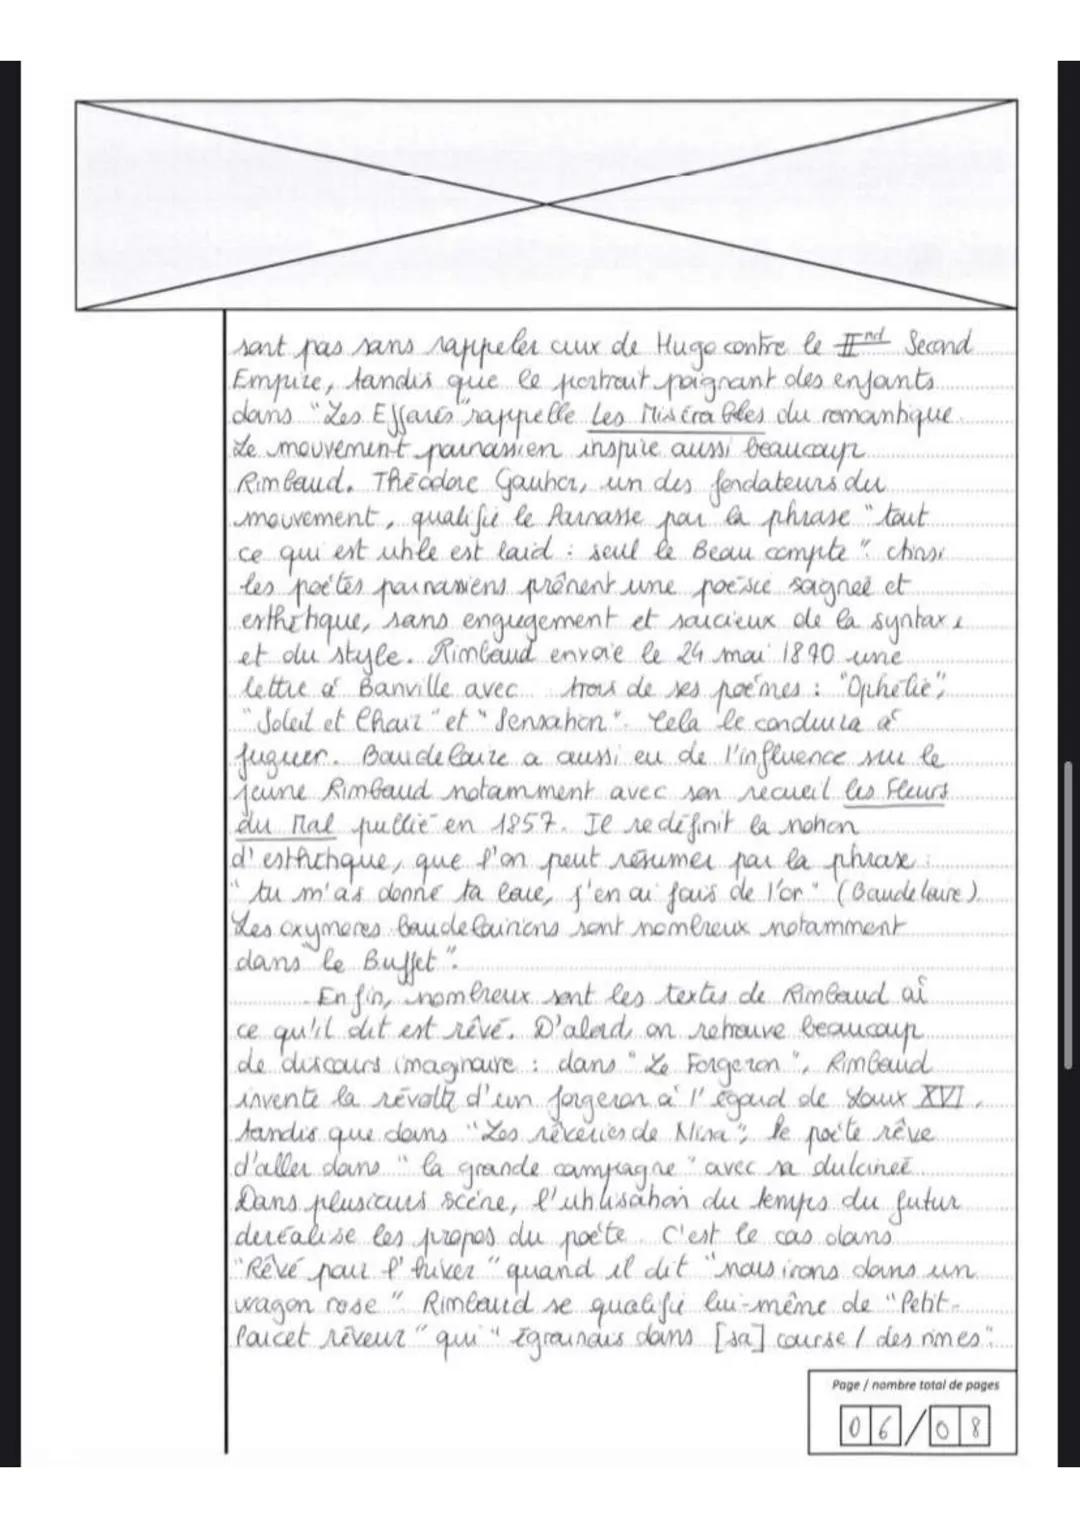 sont pas sans rappeler ceux de Hugo contre le IInd Second
Empire, tandis que le portrait poignant des enfants
dans "Les Effarés" rappelle Les Misérables du romantique.
Le mouvement parnassien inspire aussi beaucoup
Rimbaud. Théodore Gautier, un des fondateurs du
mouvement, qualifie le Parnasse par la phrase "tout
ce qui est utile est laid : seul le Beau compte". Ainsi
les poètes parnassiens prônent une poésie soignée et
esthétique, sans engagement et soucieux de la syntaxe
et du style. Rimbaud envoie le 24 mai 1870 une
lettre à Banville avec trois de ses poèmes : "Ophélie",
"Soleil et Chair" et "Sensation". Cela le conduira à
fuguer. Baudelaire a aussi eu de l'influence sur le
jeune Rimbaud notamment avec son recueil les Fleurs
du Mal publié en 1857. Il redéfinit la notion
d'esthétique, que l'on peut résumer par la phrase :
"tu m'as donné ta boue, j'en ai fais de l'or" (Baudelaire).
Les oxymores baudelairiens sont nombreux notamment
dans "le Buffet".
Enfin, nombreux sont les textes de Rimbaud où
ce qu'il dit est rêvé. D'abord, on retrouve beaucoup
de discours imaginaire : dans "Le Forgeron", Rimbaud
invente la révolte d'un forgeron à l'égard de Louix XVI,
tandis que dans "Les rêveries de Nina", le poète rêve
d'aller dans "la grande campagne" avec sa dulcinée.
Dans plusieurs scène, l'utilisation du temps du futur
déréalise les propos du poète. C'est le cas dans
"Rêvé pour l'hiver" quand il dit "nous irons dans un
wagon rose". Rimbaud se qualifie lui-même de "Petit-
Poucet rêveur" qui "égrainais dans [sa] course / des rimes".
Page / nombre total de pages
06/08